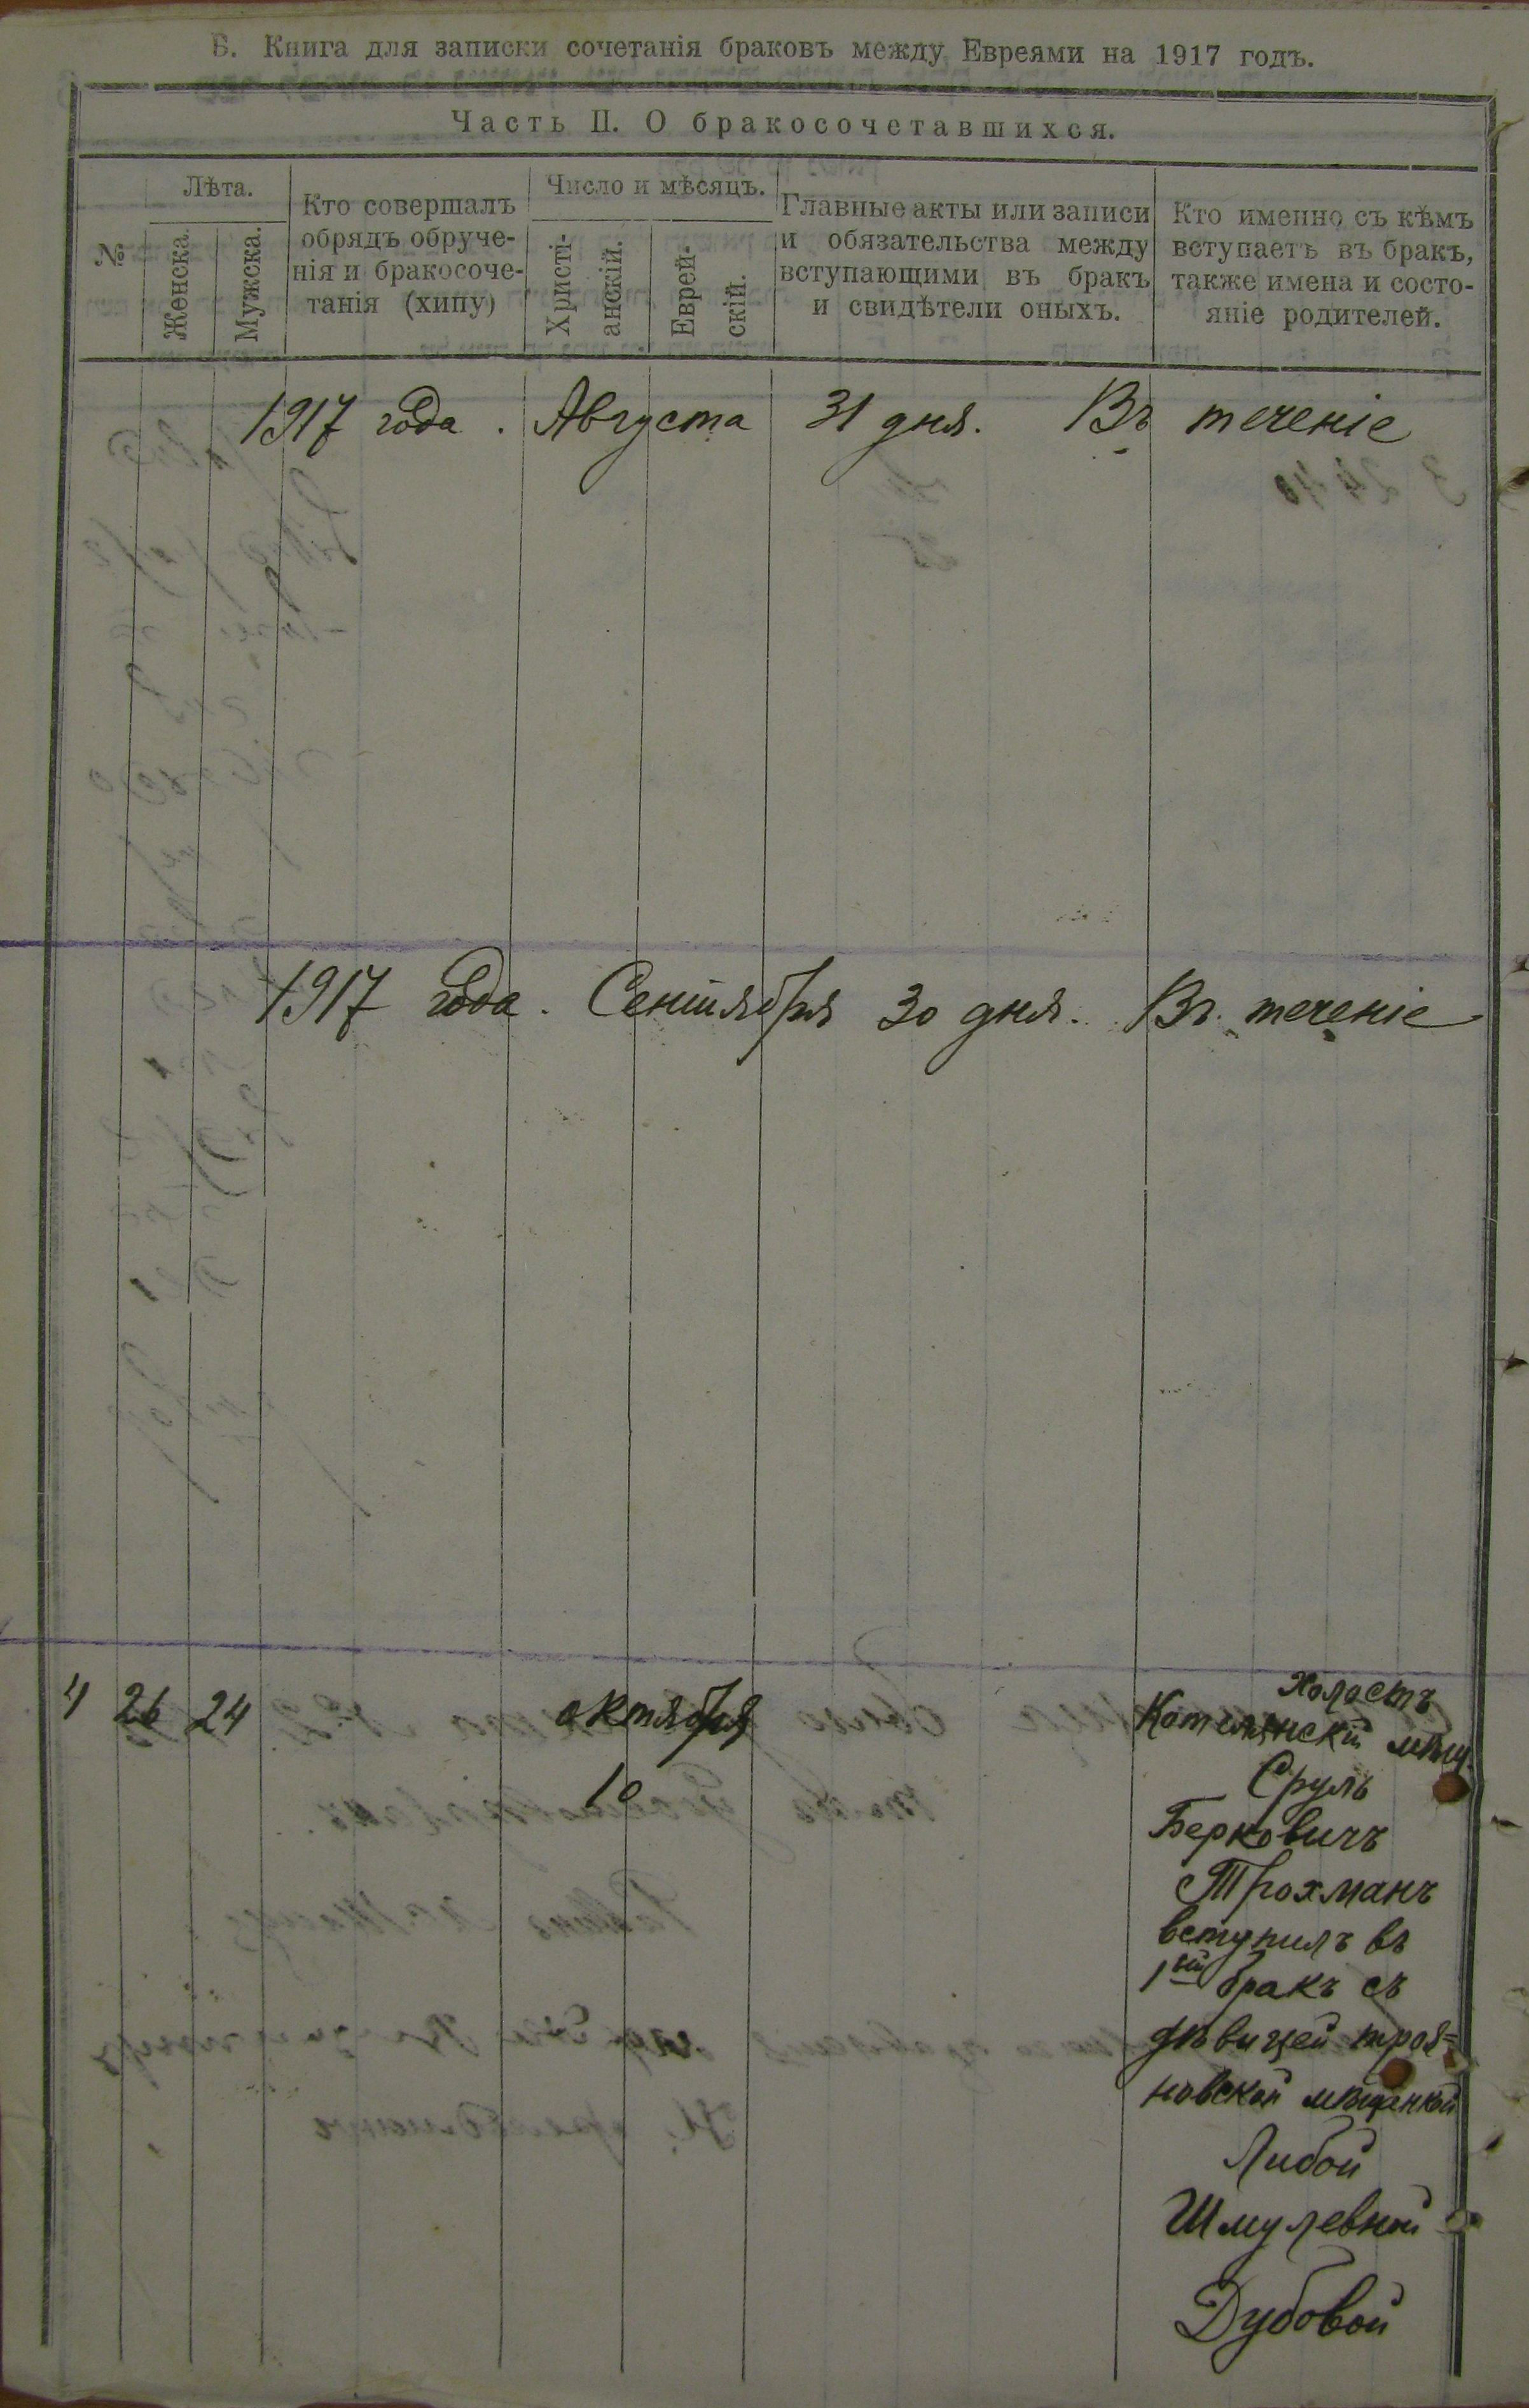 Б. Книга для записки сочетанія браковъ между Евреями на 1917 годъ.
Часть II. О бракосочетавшихся.
№
Лѣта.
Женска.
Мужска.
Кто совершалъ
обрядъ обруче-
нія и бракосоче-
танія (хипу)
Число и мѣсяцъ.
Христі-
анскій.
Еврей-
скій.
Главные акты или записи
и обязательства между
вступающими въ бракъ
и свидѣтели оныхъ.
Кто именно съ кѣмъ
вступаетъ въ бракъ,
также имена и состо-
яніе родителей.
1917 года. Августа 31 дня. Въ теченіе
1917 года. Сентября 30 дня. Въ теченіе
4 26 24 октября
10
Холостъ
мѣщ.
Сруль
Берковичъ
Трохманъ
вступилъ въ
1ый бракъ съ
дѣвицей троя=
новской мѣщанкой
Либой
Шмулевной
Дубовой